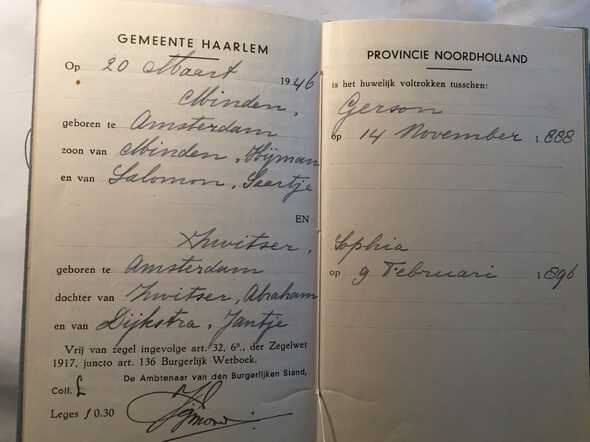 GEMEENTE HAARLEM
Op 20 Maart 1946
Minden,
geboren te Amsterdam
zoon van Minden, Hijman
en van Salomon, Saartje
EN
Zwitser,
geboren te Amsterdam
dochter van Zwitser, Abraham
en van Dijkstra, Jantje
Vrij van zegel ingevolge art. 32, 6°., der Zegelwet
1917, juncto art. 136 Burgerlijk Wetboek.
De Ambtenaar van den Burgerlijken Stand,
Coll. L
Leges f 0.30
PROVINCIE NOORDHOLLAND
is het huwelijk voltrokken tusschen:
Gerson
op 14 November 1888
Sophia
op 9 Februari 1896